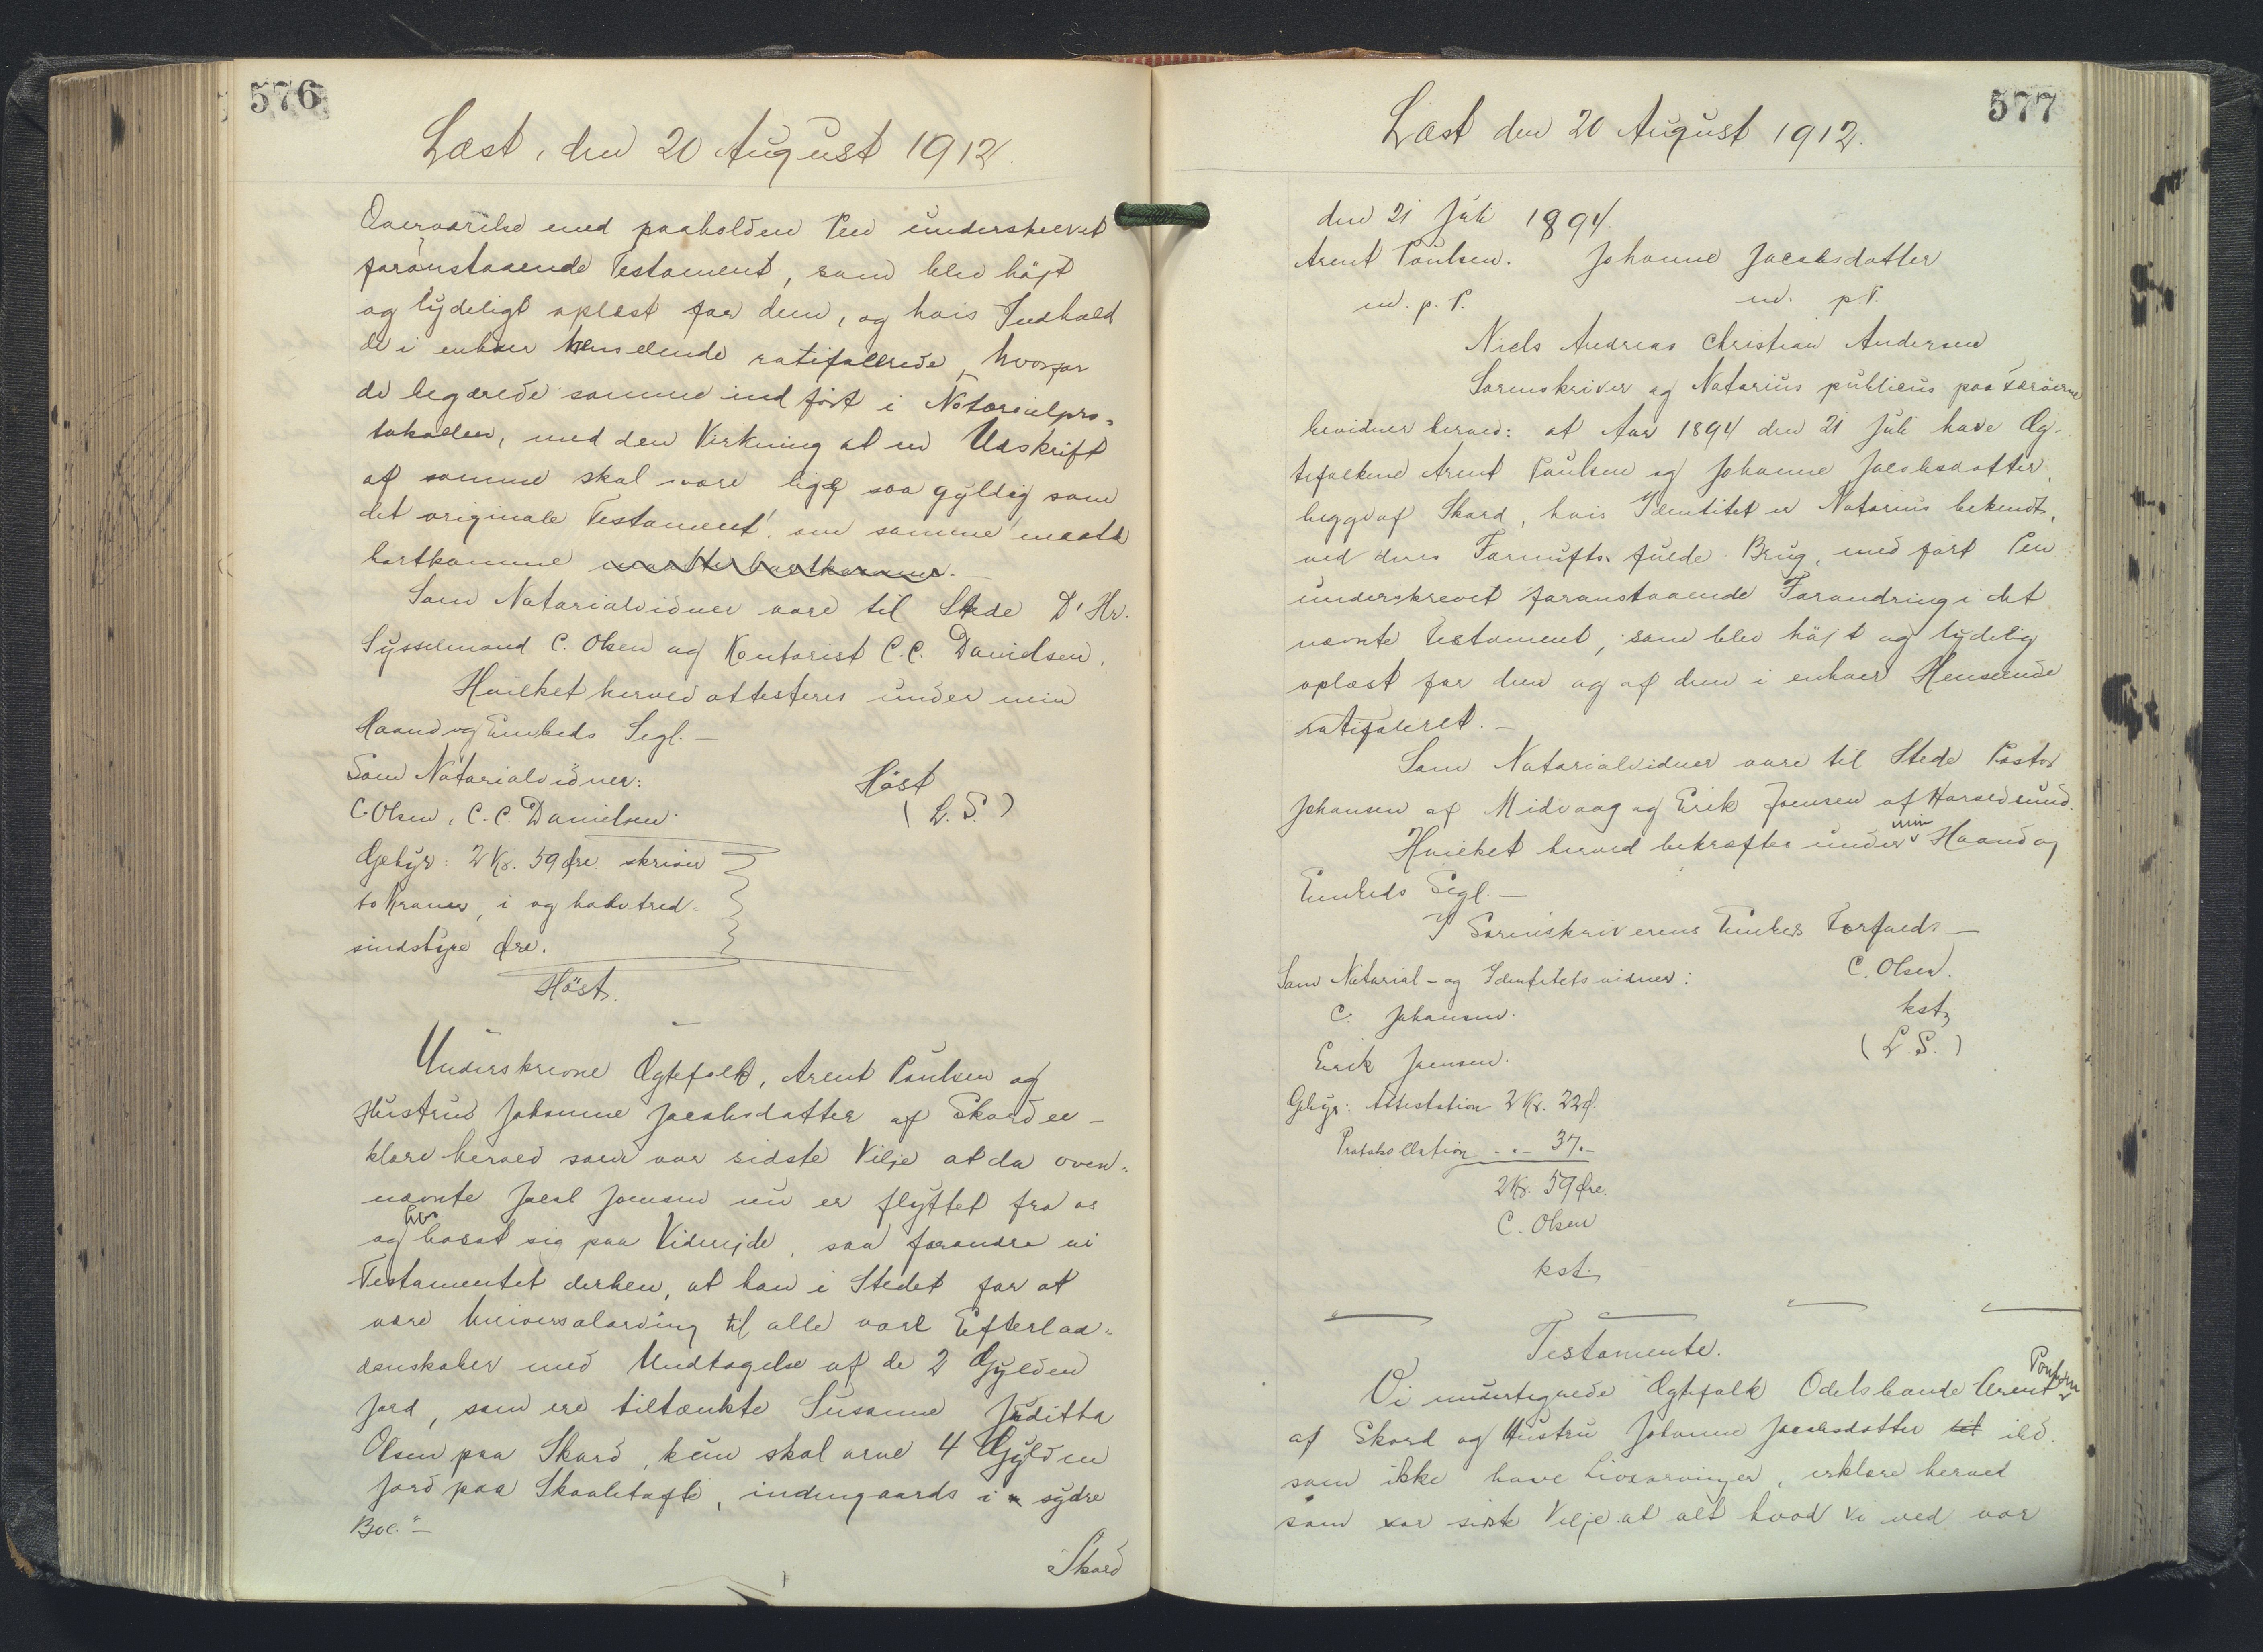 576
Læst, den 20 August 1912.
Overværelse med paaholden Pen underskrevet
foranstaaende Testament, som blev höjt
og lydeligt oplæst for dem, og hvis Indhold
de i enhver henseende ratifacerede, hvorfor
de begærede samme indført i Notarialpro-
tokollen, med den Virkning at en Udskrift
af samme skal være lige saa gyldig som
det originale Testament, om samme maatte
bortkomme maatte bortkomme.
Som Notarialvidner vare til Stede D' Hr.
Sysselmand C. Olsen og Kontorist C. C. Danielsen.
Hvilket herved attesteres under min
Haand og Embeds Segl. —
Som Notarialvidner: Höst
C. Olsen, C. C. Danielsen. (L. S.)
Gebyr: 2 Kr. 59 Øre skriver
to Kroner, i og halvtred-
sindstyve Øre.
Höst.
Underskrevne Ægtefolk, Arent Poulsen og
Hustru Johanne Jacobsdatter af Skard er-
klære herved som vor sidste Vilje at da oven-
nævnte Jacob Joensen nu er flyttet fra os
og har bosat sig paa Viderejde, saa forandre vi
Testamentet derhen, at han i Stedet for at
være Universalarving til alle vore Efterlad-
denskaber med Undtagelse af de 2 Gylden
Jord, som ere tiltænkte Susanne Juditta
Olsen paa Skard, kun skal arve 4 Gylden
Jord paa Skaaletofte, indengaards i sydre
Boe." —
Skard
577
Læst den 20 August 1912.
den 21 Juli 1894.
Arent Poulsen. Johanne Jacobsdatter
m. p. P. m. p. P.
Niels Andreas Christian Andersen
Sorenskriver og Notarius publicus paa Færöerne
bevidner herved: at Aar 1894 den 21 Juli have Æg-
tefolkene Arent Poulsen og Johanne Jacobsdatter,
begge af Skard, hvis Identitet er Notarius bekendt,
ved deres Fornufts fulde Brug, med ført Pen
underskrevet foranstaaende Forandring i det
nævnte Testament, som blev höjt og lydelig
oplæst for dem og af dem i enhver Henseende
ratifaceret. —
Som Notarialvidner vare til Stede Pastor
Johansen af Midvaag og Erik Joensen af Haraldsund.
Hvilket herved bekræftes under min Haand og
Embeds Segl. —
I Sorenskriverens Embeds Forfald —
Som Notarial- og Identitetsvidner: C. Olsen.
C. Johansen. kst.
Erik Joensen. (L. S.)
Gebyr: Attestation 2 Kr. 22 Ø.
Protokollation - " - 37 "-
2 Kr. 59 Øre.
C. Olsen
kst.
Testamente.
Vi undertegnede Ægtefolk Odelsbonde Arent Poulsen
af Skard og Hustru Johanne Jacobsdatter til ibd.
som ikke have Livsarvinger, erklære herved
som vor sidste Vilje at alt hvad vi ved vor